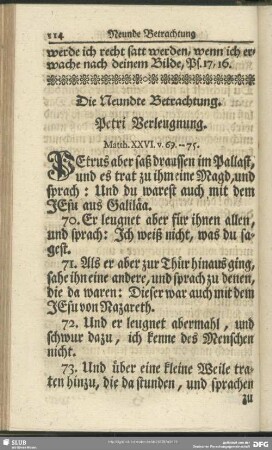 114 Neunde Betrachtung
werde ich recht satt werden, wenn ich er-
wache nach deinem Bilde, Ps. 17, 16.
Die Neundte Betrachtung.
Petri Verleugnung.
Matth. XXVI. v. 69. -- 75.
PEtrus aber saß draussen im Pallast,
und es trat zu ihm eine Magd, und
sprach: Und du warest auch mit dem
JEsu aus Galiläa.
70. Er leugnet aber für ihnen allen,
und sprach: Ich weiß nicht, was du sa-
gest.
71. Als er aber zur Thür hinaus ging,
sahe ihn eine andere, und sprach zu denen,
die da waren: Dieser war auch mit dem
JEsu von Nazareth.
72. Und er leugnet abermahl, und
schwur dazu, ich kenne des Menschen
nicht.
73. Und über eine kleine Weile tra-
ten hinzu, die da stunden, und sprachen
zu
SLUB
DFG